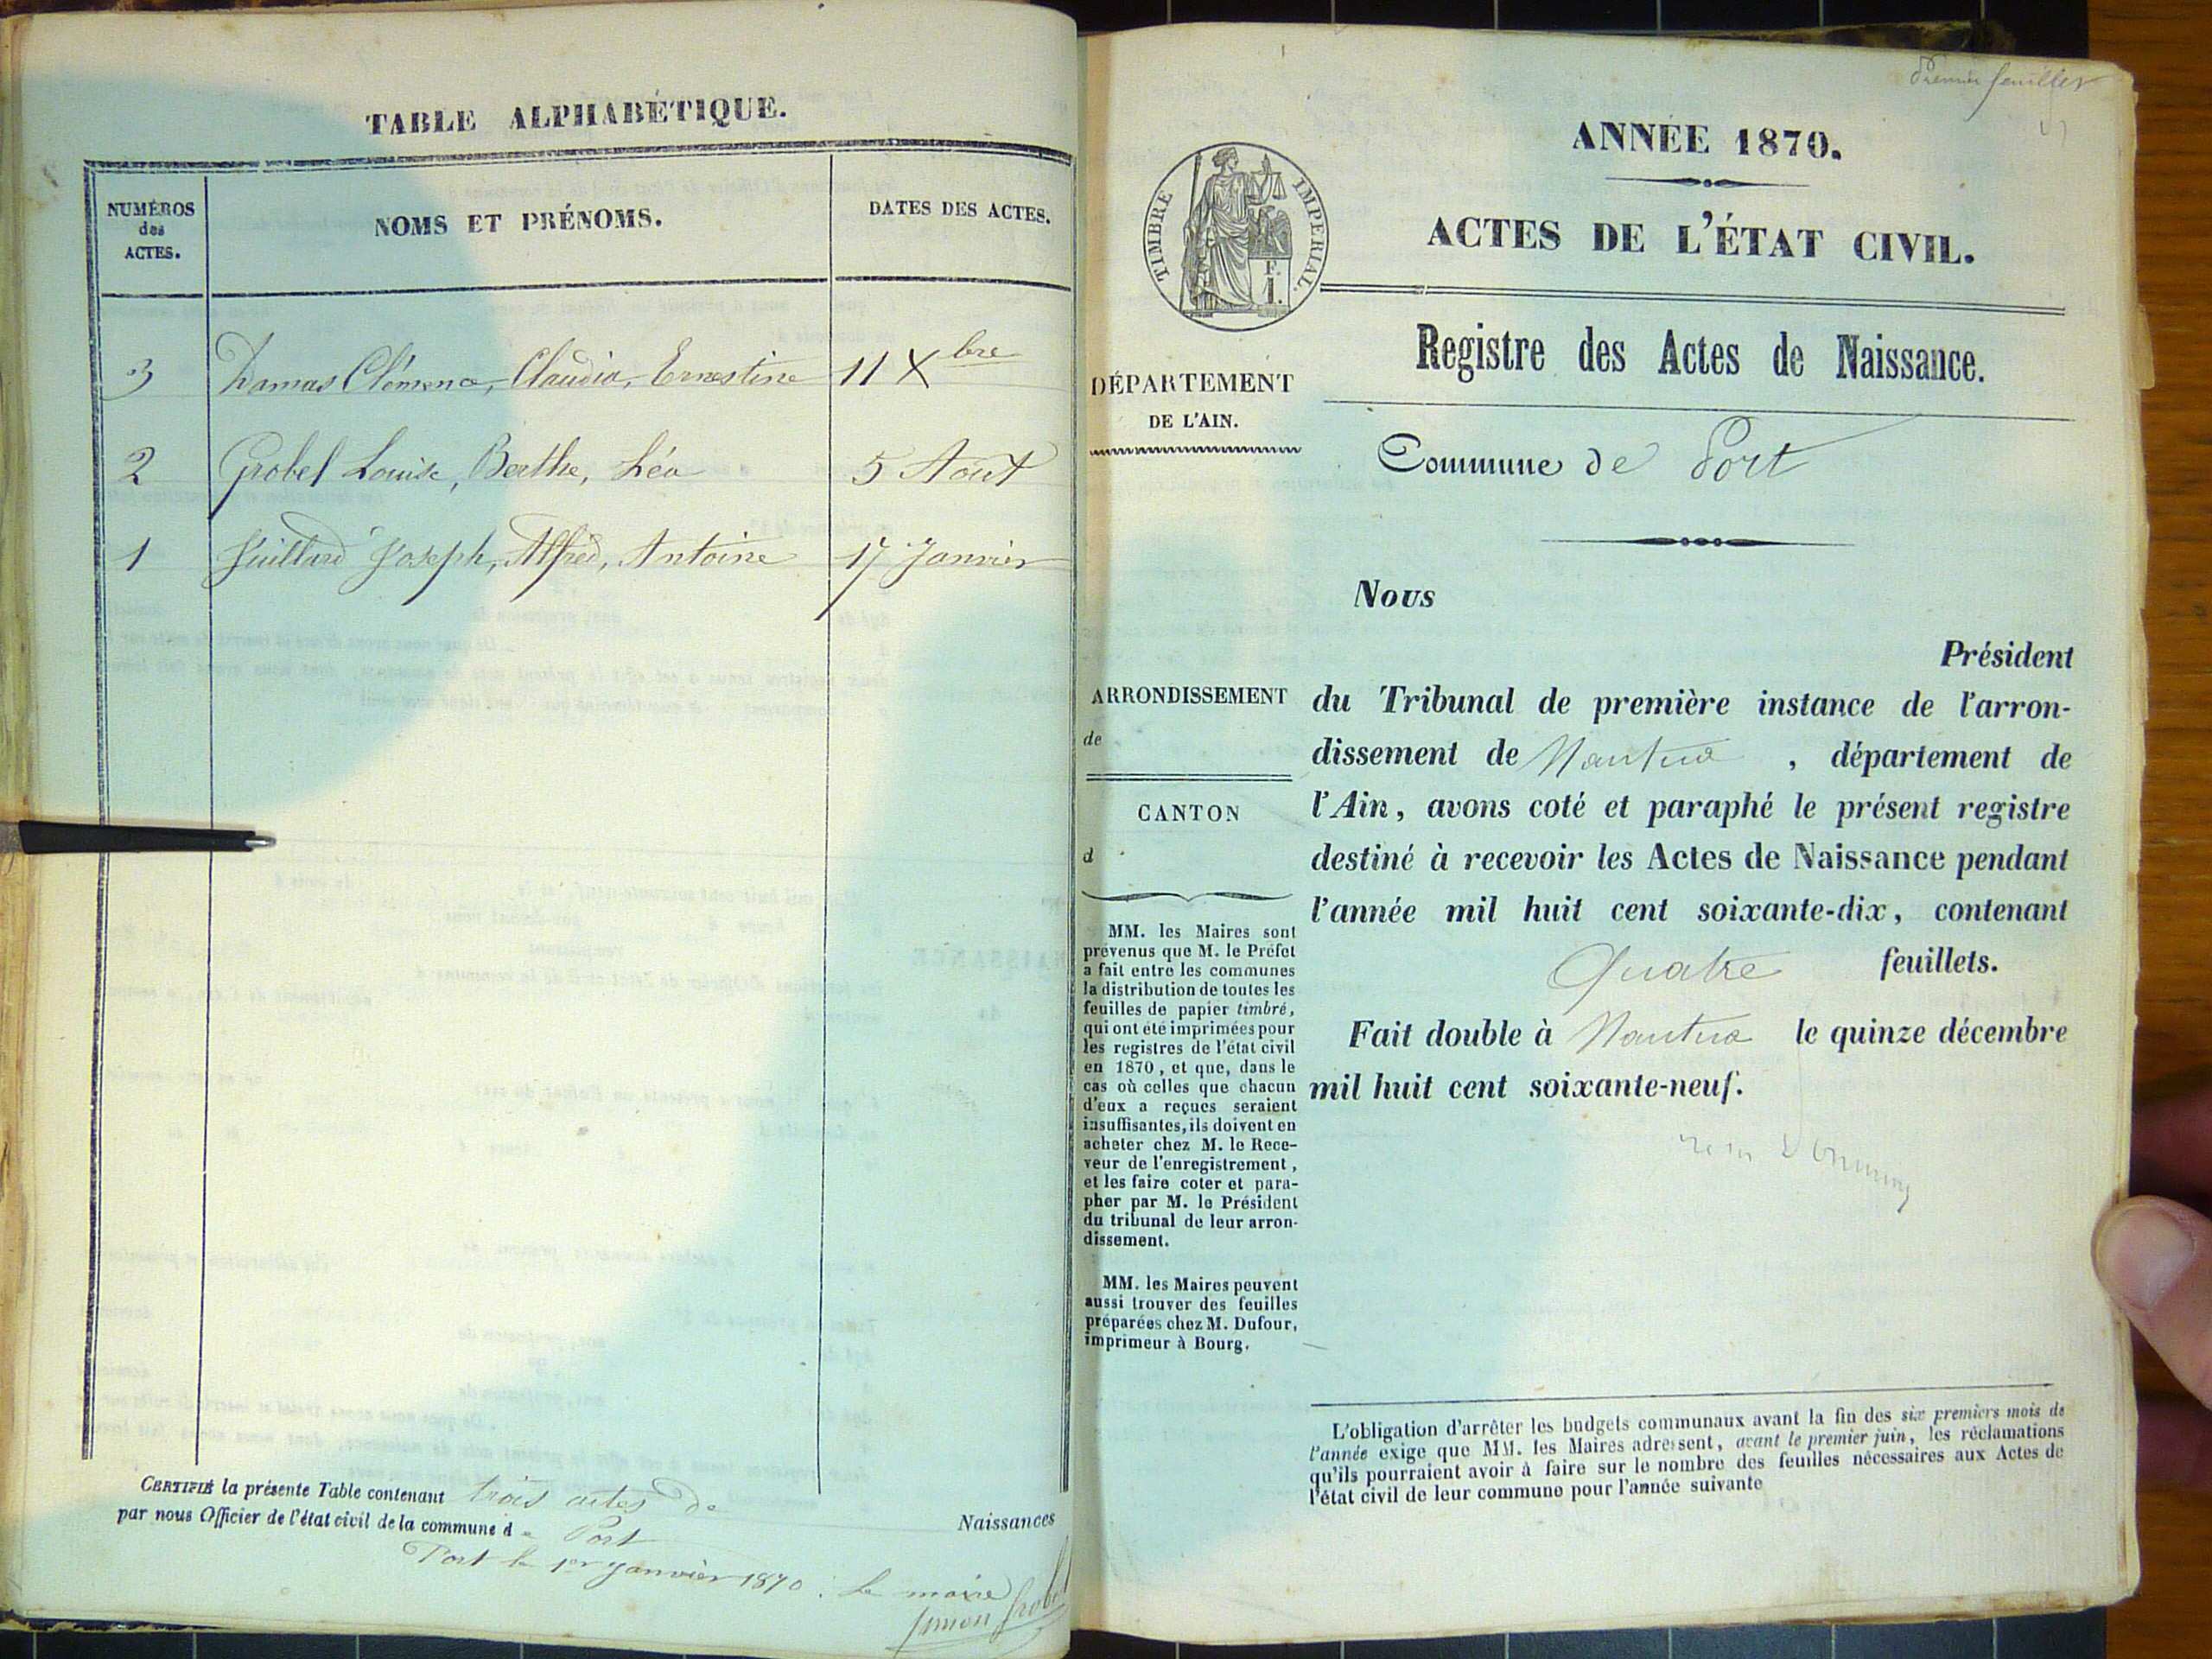 TABLE ALPHABÉTIQUE.
NUMÉROS
des
ACTES.
NOMS ET PRÉNOMS.
DATES DES ACTES.
3 Damas Clémence, Claudia, Ernestine 11 Xbre
2 Grobel Louise, Berthe, Léa 5 Aout
1 Juillard Joseph, Alfred, Antoine 17 Janvier
CERTIFIÉ la présente Table contenant trois actes de Naissances
par nous Officier de l'état civil de la commune de Port
Port le 1er Janvier 1870. Le maire
Simon Grobel
Premier feuillet
ANNÉE 1870.
TIMBRE IMPÉRIAL.
F.
1.
ACTES DE L'ÉTAT CIVIL.
Registre des Actes de Naissance.
DÉPARTEMENT
DE L'AIN.
Commune de Port
ARRONDISSEMENT
de
CANTON
d
MM. les Maires sont
prévenus que M. le Préfet
a fait entre les communes
la distribution de toutes les
feuilles de papier timbré,
qui ont été imprimées pour
les registres de l'état civil
en 1870, et que, dans le
cas où celles que chacun
d'eux a reçues seraient
insuffisantes, ils doivent en
acheter chez M. le Rece-
veur de l'enregistrement,
et les faire coter et para-
pher par M. le Président
du tribunal de leur arron-
dissement.
MM. les Maires peuvent
aussi trouver des feuilles
préparées chez M. Dufour,
imprimeur à Bourg.
Nous
Président
du Tribunal de première instance de l'arron-
dissement de Nantua, département de
l'Ain, avons coté et paraphé le présent registre
destiné à recevoir les Actes de Naissance pendant
l'année mil huit cent soixante-dix, contenant
Quatre feuillets.
Fait double à Nantua le quinze décembre
mil huit cent soixante-neuf.
L'obligation d'arrêter les budgets communaux avant la fin des six premiers mois de
l'année exige que MM. les Maires adressent, avant le premier juin, les réclamations
qu'ils pourraient avoir à faire sur le nombre des feuilles nécessaires aux Actes de
l'état civil de leur commune pour l'année suivante